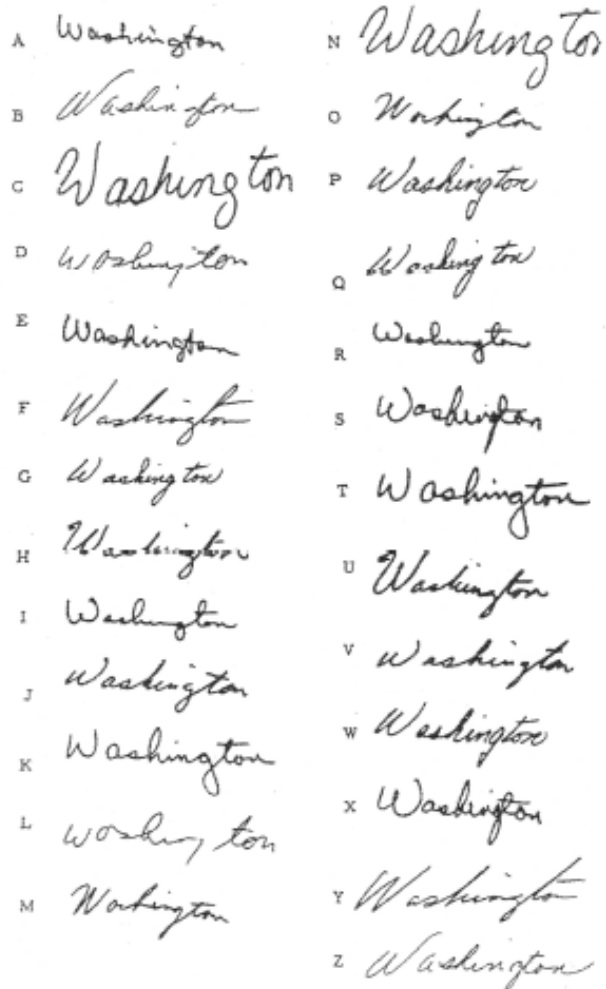 A Washington
B Washington
C Washington
D Washington
E Washington
F Washington
G Washington
H Washington
I Washington
J Washington
K Washington
L Washington
M Washington
N Washington
O Washington
P Washington
Q Washington
R Washington
S Washington
T Washington
U Washington
V Washington
W Washington
X Washington
Y Washington
Z Washington